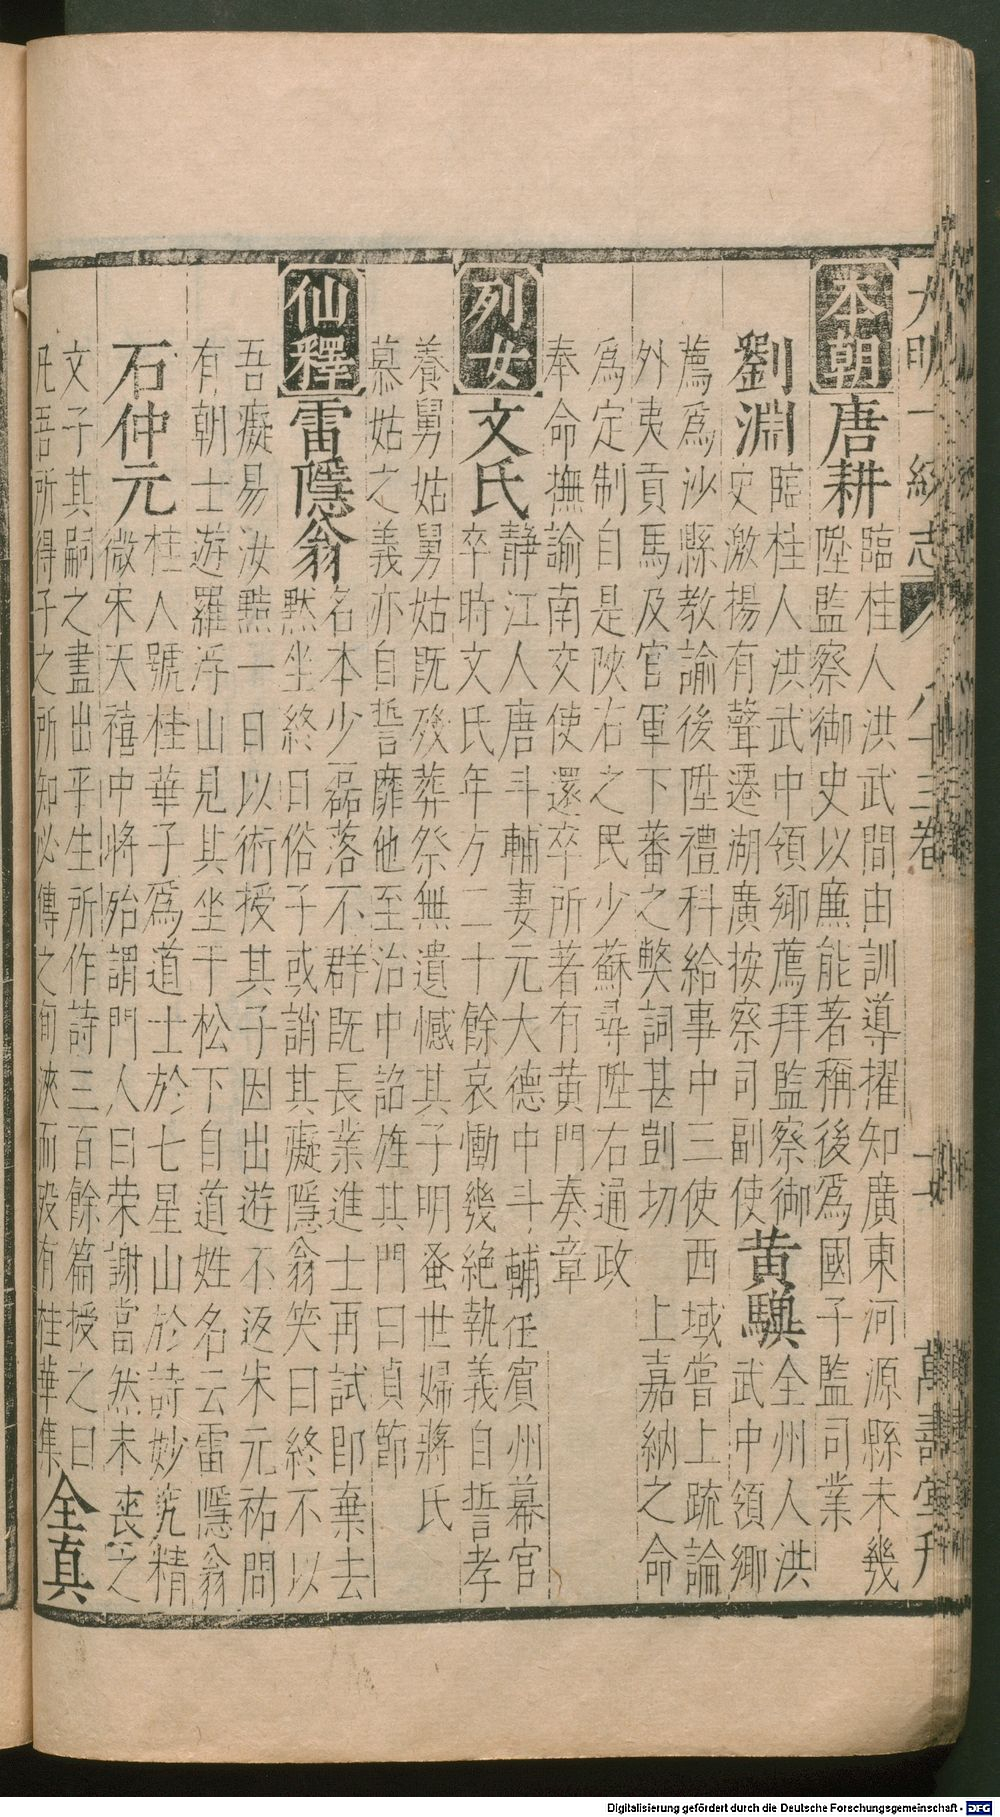 大明一統志 八十三卷 萬壽堂刊
本朝 唐耕 臨桂人洪武間由訓導擢知廣東河源縣未幾
陞監察御史以廉能著稱後爲國子監司業
劉淵 臨桂人洪武中領鄉薦拜監察御
史激揚有聲遷湖廣按察司副使 黃驥 全州人洪
武中領鄉
薦爲沙縣教諭後陞禮科給事中三使西域嘗上疏論
外夷貢馬及官軍下蕃之弊詞甚剴切 上嘉納之命
爲定制自是陝右之民少蘇尋陞右通政
奉命撫諭南交使還卒所著有黃門奏章
列女 文氏 靜江人唐斗輔妻元大德中斗輔任賓州幕官
卒時文氏年方二十餘哀慟幾絶執義自誓孝
養舅姑舅姑既歿葬祭無遺憾其子明蚤世婦蔣氏
慕姑之義亦自誓靡他至治中詔旌其門曰貞節
仙釋 雷隱翁 名本少磊落不群既長業進士再試即棄去
默坐終日俗子或誚其癡隱翁笑曰終不以
吾癡易汝黠一日以術授其子因出遊不返宋元祐間
有朝士遊羅浮山見其坐于松下自道姓名云雷隱翁
石仲元 桂人號桂華子爲道士於七星山於詩妙究精
微宋天禧中將殆謂門人曰荣謝當然未丧之
文子其嗣之盡出平生所作詩三百餘篇授之曰
凡吾所得子之所知必傳之旬浹而歿有桂華集 全真
Digitalisierung gefördert durch die Deutsche Forschungsgemeinschaft - DFG